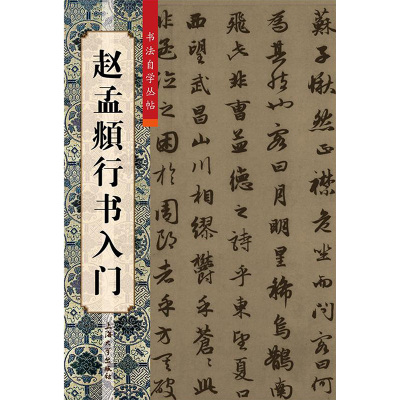 赵孟頫行书入门
书法自学丛帖
上海大学出版社
蘇子愀然正襟危坐而問客曰何
為其然也客曰月明星稀烏鵲南
飛此非曹孟德之詩乎東望夏口
西望武昌山川相繆鬱乎蒼蒼此
非孟德之困於周郎者乎方其破